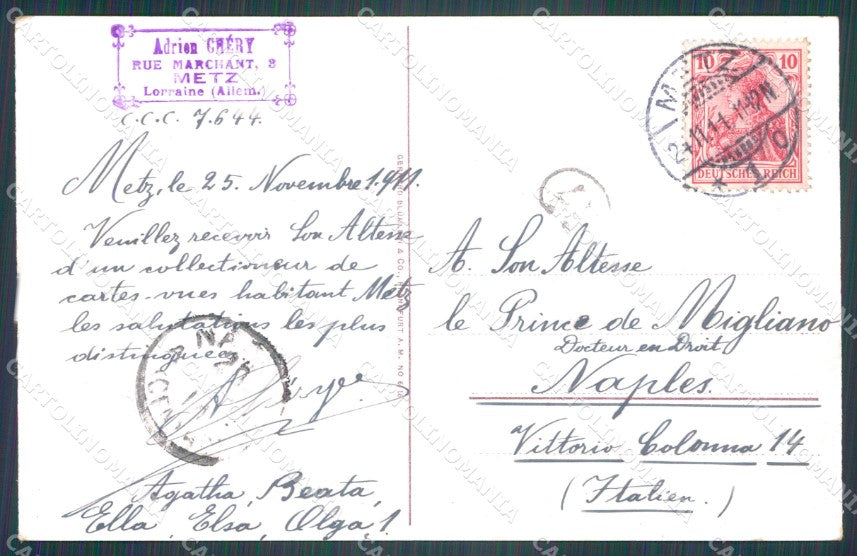 Adrien CHÉRY
RUE MARCHANT, 8
METZ
Lorraine (Allem.)
C.C.C. 7.644.
Metz, le 25. Novembre 1911.
Veuillez recevoir Son Altesse
d'un collectioneur de
cartes-vues habitant Metz
les salutations les plus
distinguées
Agatha, Beata,
Ella, Elsa, Olga, 1.
METZ
10 10
DEUTSCHES REICH
A. Son Altesse
le Prince de Migliano
Docteur en Droit
Naples.
Vittorio Colonna 14
(Italien.)
CARTOLINOMANIA